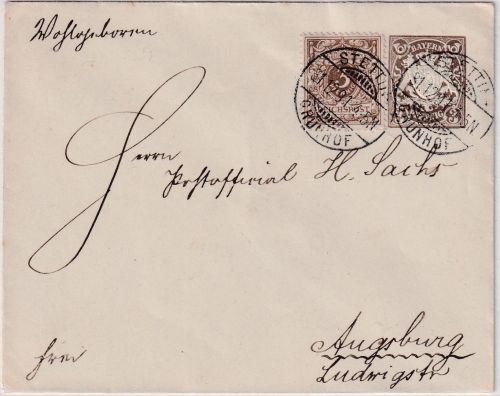 Wohlgeboren
STETTIN
GRÜNHOF
3
BAYERN
3
STETTIN
GRÜNHOF
Herrn
Postofficial H. Sachs
frei
Augsburg
Ludwigstr